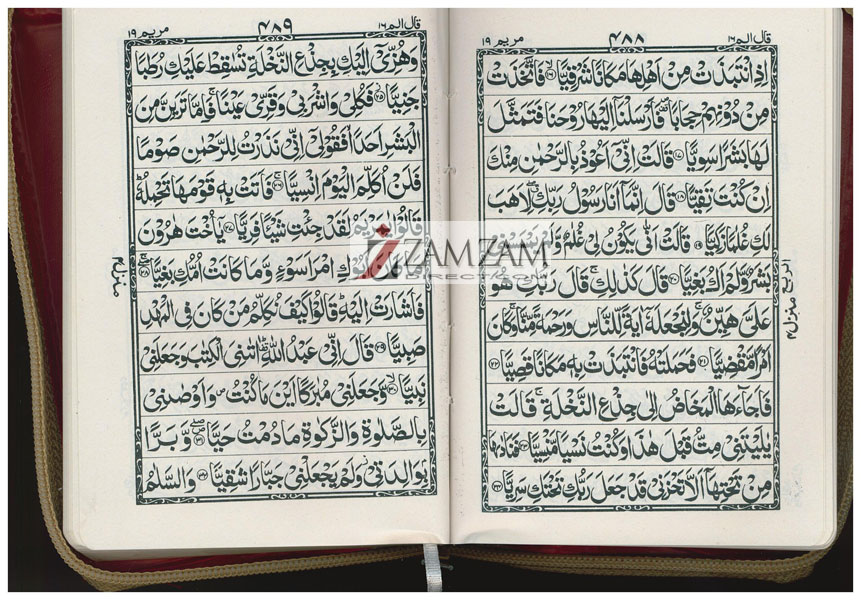 قال الم ١٦
٤٨٨
مريم ١٩
اِذِ انْتَبَذَتْ مِنْ اَهْلِهَا مَكَانًا شَرْقِيًّا ﴿١٦﴾ فَاتَّخَذَتْ
مِنْ دُوْنِهِمْ حِجَابًا فَاَرْسَلْنَاۤ اِلَيْهَا رُوْحَنَا فَتَمَثَّلَ
لَهَا بَشَرًا سَوِيًّا ﴿١٧﴾ قَالَتْ اِنِّيْۤ اَعُوْذُ بِالرَّحْمٰنِ مِنْكَ
اِنْ كُنْتَ تَقِيًّا ﴿١٨﴾ قَالَ اِنَّمَاۤ اَنَا رَسُوْلُ رَبِّكِ لِاَهَبَ
لَكِ غُلٰمًا زَكِيًّا ﴿١٩﴾ قَالَتْ اَنّٰى يَكُوْنُ لِيْ غُلٰمٌ وَّلَمْ
بَشَرٌ وَّلَمْ اَكُ بَغِيًّا ﴿٢٠﴾ قَالَ كَذٰلِكِ قَالَ رَبُّكِ هُوَ
عَلَيَّ هَيِّنٌ وَلِنَجْعَلَهٗۤ اٰيَةً لِّلنَّاسِ وَرَحْمَةً مِّنَّا وَكَانَ
اَمْرًا مَّقْضِيًّا ﴿٢١﴾ فَحَمَلَتْهُ فَانْتَبَذَتْ بِهٖ مَكَانًا قَصِيًّا ﴿٢٢﴾
فَاَجَآءَهَا الْمَخَاضُ اِلٰى جِذْعِ النَّخْلَةِ قَالَتْ
يٰلَيْتَنِيْ مِتُّ قَبْلَ هٰذَا وَكُنْتُ نَسْيًا مَّنْسِيًّا ﴿٢٣﴾ فَنَادٰىهَا
مِنْ تَحْتِهَاۤ اَلَّا تَحْزَنِيْ قَدْ جَعَلَ رَبُّكِ تَحْتَكِ سَرِيًّا ﴿٢٤﴾
الربع
منزل ٤
قال الم ١٦
٤٨٩
مريم ١٩
وَهُزِّيْۤ اِلَيْكِ بِجِذْعِ النَّخْلَةِ تُسٰقِطْ عَلَيْكِ رُطَبًا
جَنِيًّا ﴿٢٥﴾ فَكُلِيْ وَاشْرَبِيْ وَقَرِّيْ عَيْنًا فَاِمَّا تَرَيِنَّ مِنَ
الْبَشَرِ اَحَدًا فَقُوْلِيْۤ اِنِّيْ نَذَرْتُ لِلرَّحْمٰنِ صَوْمًا
فَلَنْ اُكَلِّمَ الْيَوْمَ اِنْسِيًّا ﴿٢٦﴾ فَاَتَتْ بِهٖ قَوْمَهَا تَحْمِلُهٗ
قَالُوْا يٰمَرْيَمُ لَقَدْ جِئْتِ شَيْـًٔا فَرِيًّا ﴿٢٧﴾ يٰۤاُخْتَ هٰرُوْنَ
كَانَ اَبُوْكِ امْرَاَ سَوْءٍ وَّمَا كَانَتْ اُمُّكِ بَغِيًّا ﴿٢٨﴾
فَاَشَارَتْ اِلَيْهِ قَالُوْا كَيْفَ نُكَلِّمُ مَنْ كَانَ فِى الْمَهْدِ
صَبِيًّا ﴿٢٩﴾ قَالَ اِنِّيْ عَبْدُ اللّٰهِ اٰتٰىنِيَ الْكِتٰبَ وَجَعَلَنِيْ
نَبِيًّا ﴿٣٠﴾ وَّجَعَلَنِيْ مُبٰرَكًا اَيْنَ مَا كُنْتُ وَاَوْصٰنِيْ
بِالصَّلٰوةِ وَالزَّكٰوةِ مَا دُمْتُ حَيًّا ﴿٣١﴾ وَّبَرًّا
بِوَالِدَتِيْ وَلَمْ يَجْعَلْنِيْ جَبَّارًا شَقِيًّا ﴿٣٢﴾ وَالسَّلٰمُ
منزل ٤
ZAMZAM
DIRECT.COM